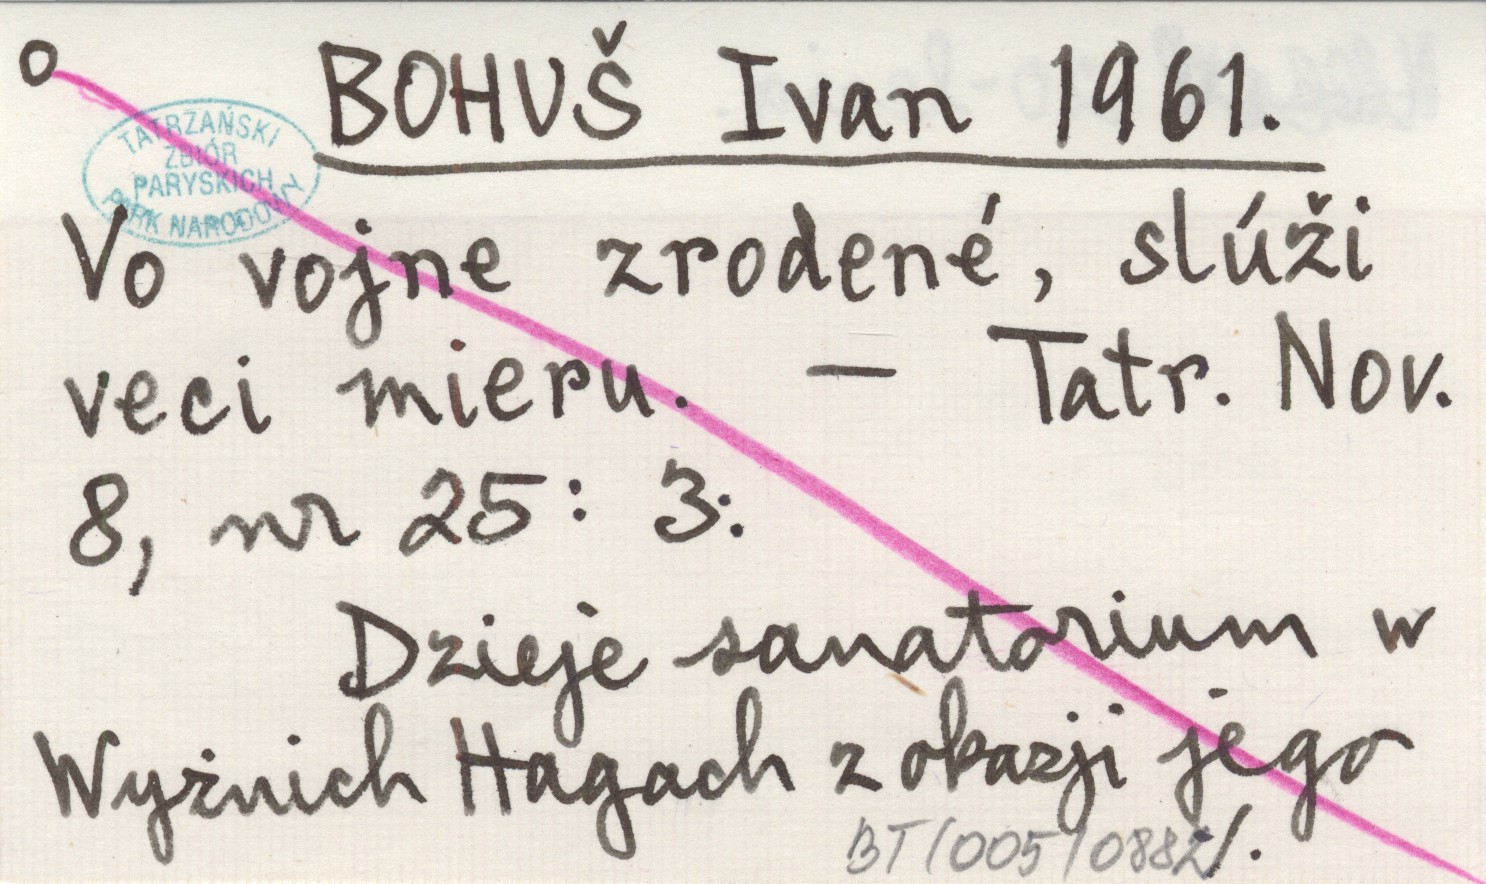 o BOHUŠ Ivan 1961.
TATRZAŃSKI
ZBIÓR
PARYSKICH
PARK NARODOWY
Vo vojne zrodené, slúži
veci mieru. — Tatr. Nov.
8, nr 25: 3.
Dzieje sanatorium w
Wyżnich Hagach z okazji jego
BT/005/0882 /.